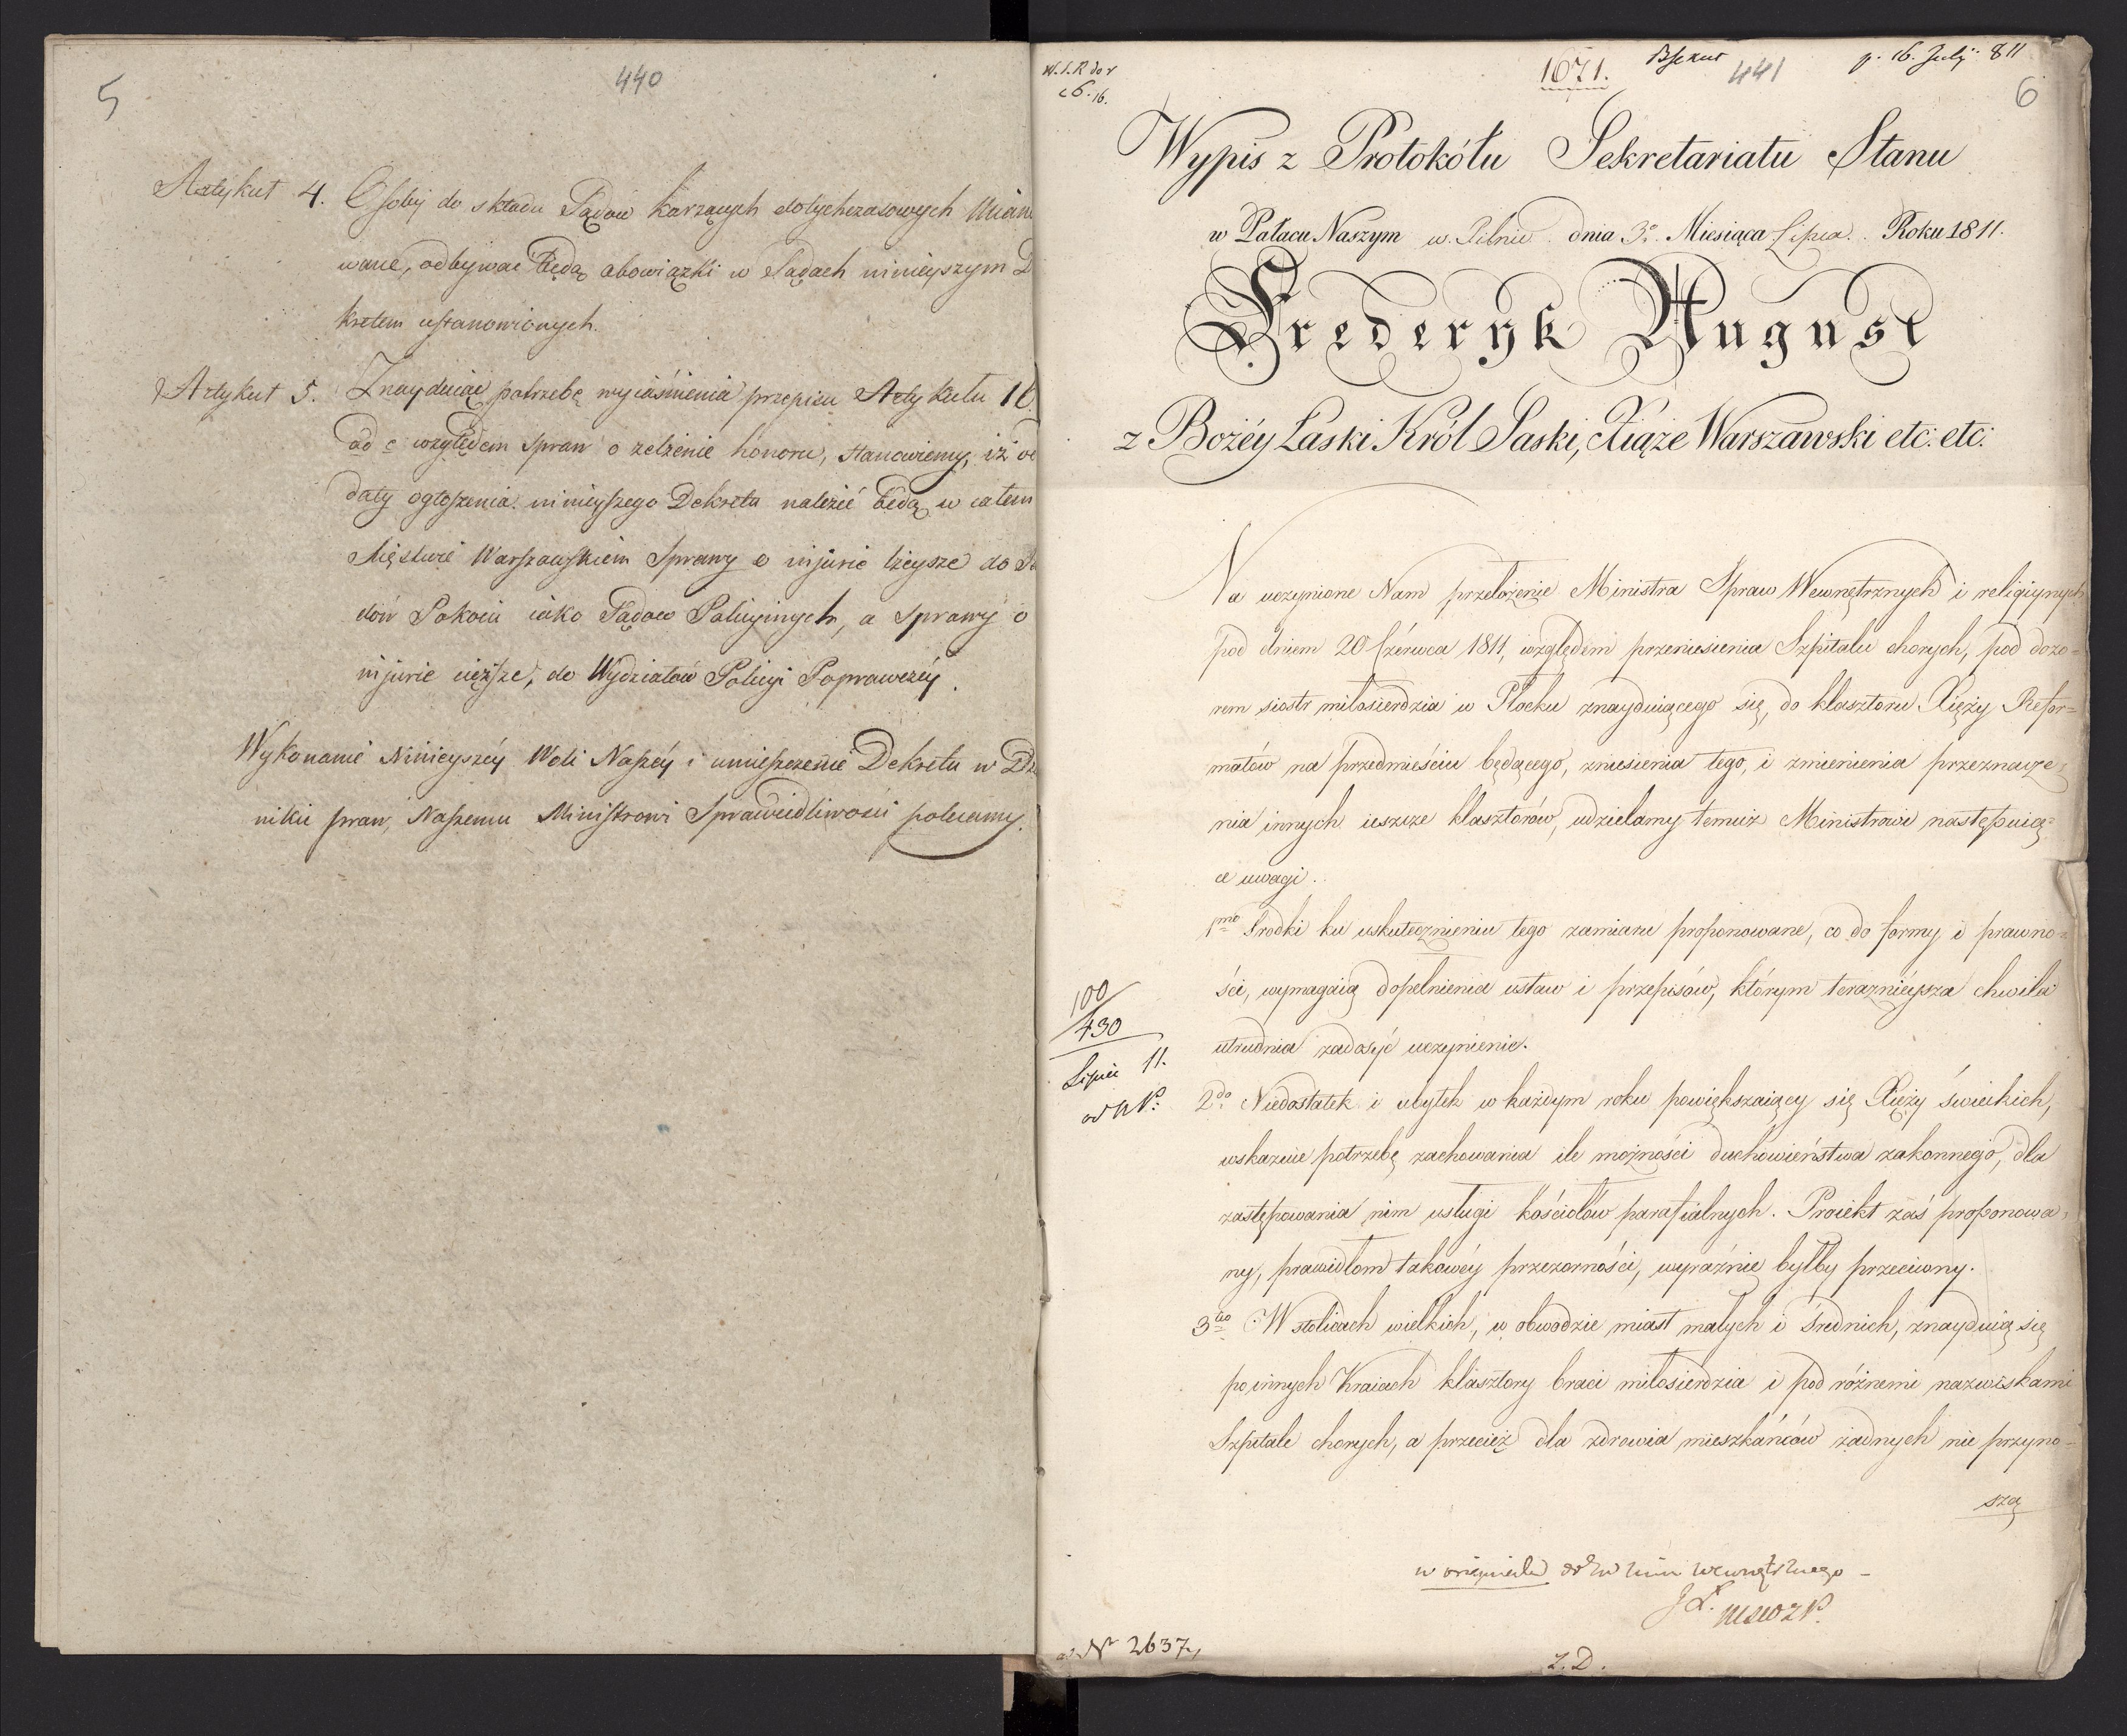 5
440
Artykuł 4. Osoby do składu Sądów karzących dotychczasowych miano
wane, odbywać będą obowiązki w Sądach ninieyszym D
kretem ustanowionych.
Artykuł 5. Znayduiąc potrzebę wyiaśnienia przepisu Artykułu 16.
ad c względem spraw o zelżenie honoru, stanowiemy, iż od
daty ogłoszenia ninieyszego Dekretu należeć będą w całem
Xięstwie Warszawskiem Sprawy o injurie lżeysze do Są
dów Pokoiu iako Sądów Policyinych, a Sprawy o
injurie cięższe, do Wydziałów Policyi Poprawczéy.
Wykonanie Ninieyszéy Woli Naszéy i umieszczenie Dekretu w Dzie
niku praw, Naszemu Ministrowi Sprawiedliwości polecamy.
1671.
441
16. July 811
6
Wypis z Protokółu Sekretariatu Stanu
w Pałacu Naszym w Pilnic dnia 3º. Miesiąca Lipca. Roku 1811.
Frederyk August
z Bożéy Łaski Król Saski, Xiąże Warszawski etc: etc:
Na uczynione Nam przełożenie Ministra Spraw Wewnętrznych i religiynych
pod dniem 20 Czérwca 1811, względem przeniesienia Szpitalu chorych, pod dozo=
rem siostr miłosierdzia w Płocku znayduiącego się, do klasztoru Xięży Refor=
matów na przedmieściu będącego, zniesienia tego, i zmienienia przeznacze=
nia innych ieszcze klasztorów, udzielamy temuż Ministrowi następuią=
ce uwagi.
1mo Srodki ku uskutecznieniu tego zamiaru proponowane, co do formy i prawno=
ści, wymagaią dopełnienia ustaw i przepisów, którym teraznieysza chwila
utrudnia zadosyć uczynienie.
100
430
Lipiec 11.
2do Niedostatek i ubytek w każdym roku powiększaiący się Xięży świeckich,
wskazuie potrzebę zachowania ile możności duchowieństwa zakonnego, dla
zastępowania nim usługi kościołów parafialnych. Proiekt zaś proponowa=
ny, prawidłom takowéy przezorności, wyraźnie byłby przeciwny.
3tio W stolicach wielkich, w obwodzie miast małych i średnich, znayduią się
po innych Kraiach klasztory braci miłosierdzia i pod różnemi nazwiskami
Szpitale chorych, a przecież dla zdrowia mieszkańców żadnych nie przyno=
szą
Nr 2637
Z. D.